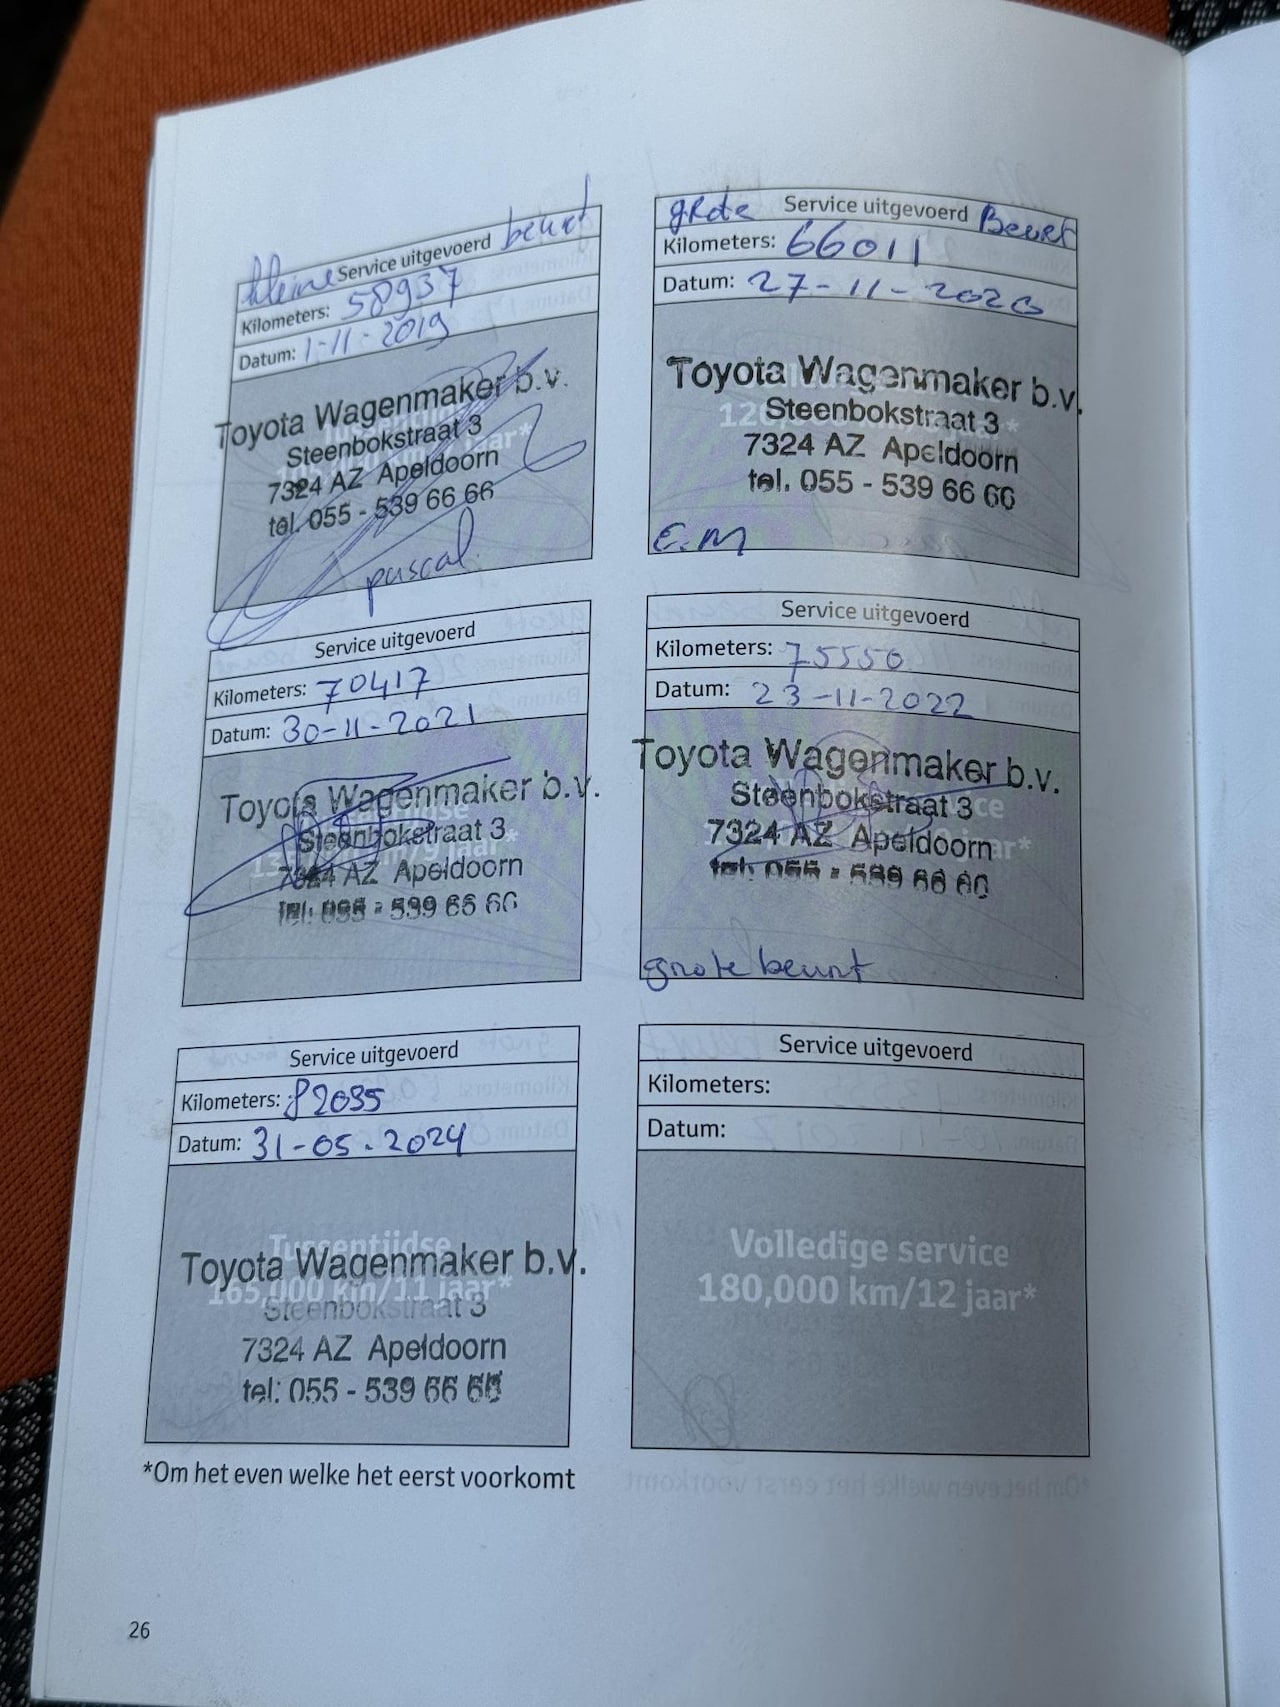 kleine Service uitgevoerd beurt
Kilometers: 58937
Datum: 1-11-2019
Toyota Wagenmaker b.v.
Steenbokstraat 3
7324 AZ Apeldoorn
tel. 055 - 539 66 66
pascal
grote Service uitgevoerd Beurt
Kilometers: 66011
Datum: 27-11-2020
Toyota Wagenmaker b.v.
120,000 km/8 jaar*
Steenbokstraat 3
7324 AZ Apeldoorn
tel. 055 - 539 66 66
E.M
Service uitgevoerd
Kilometers: 70417
Datum: 30-11-2021
Toyota Wagenmaker b.v.
Steenbokstraat 3
7324 AZ Apeldoorn
tel: 055 - 539 66 66
Service uitgevoerd
Kilometers: 75550
Datum: 23-11-2022
Toyota Wagenmaker b.v.
Steenbokstraat 3
7324 AZ Apeldoorn
tel: 055 - 539 66 66
grote beurt
Service uitgevoerd
Kilometers: 82035
Datum: 31-05-2024
Tussentijdse
Toyota Wagenmaker b.v.
165,000 km/11 jaar*
Steenbokstraat 3
7324 AZ Apeldoorn
tel: 055 - 539 66 66
Service uitgevoerd
Kilometers:
Datum:
Volledige service
180,000 km/12 jaar*
*Om het even welke het eerst voorkomt
26